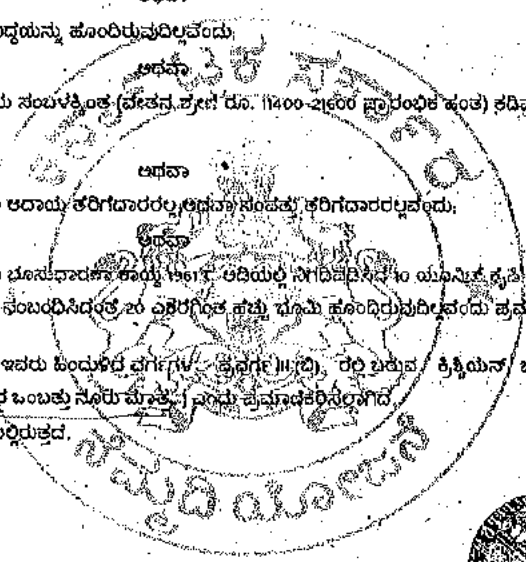 ಅಥವಾ
ಹೊಂದಿರುವುದಿಲ್ಲವೆಂದು;
ಅಥವಾ
ಸಂಬಳಕ್ಕಿಂತ (ವೇತನ ಶ್ರೇಣಿ ರೂ. 11400-21600 ಪ್ರಾರಂಭಿಕ ಹಂತ)
ಅಥವಾ
ಆದಾಯ ತೆರಿಗೆದಾರರಲ್ಲ ಅಥವಾ ಸಂಪತ್ತು ತೆರಿಗೆದಾರರಲ್ಲವೆಂದು;
ಅಥವಾ
ಭೂಸುಧಾರಣಾ ಕಾಯ್ದೆ 1961ರ ಅಡಿಯಲ್ಲಿ ನಿಗದಿಪಡಿಸಿದ 10 ಯೂನಿಟ್
ಸಂಬಂಧಿಸಿದಂತೆ 20 ಎಕರೆಗಿಂತ ಹೆಚ್ಚು ಭೂಮಿ ಹೊಂದಿರುವುದಿಲ್ಲವೆಂದು
ಇವರು ಹಿಂದುಳಿದ ವರ್ಗಗಳ ಪ್ರವರ್ಗ III(ಬಿ), ರಲ್ಲಿ ಬರುವ ಕ್ರಿಶ್ಚಿಯನ್,
ಒಂಬತ್ತು ನೂರು ಮಾತ್ರ ) ಎಂದು ಪ್ರಮಾಣೀಕರಿಸಲಾಗಿದೆ.
ಕರ್ನಾಟಕ ಸರ್ಕಾರ
ನೆಮ್ಮದಿ ಯೋಜನೆ